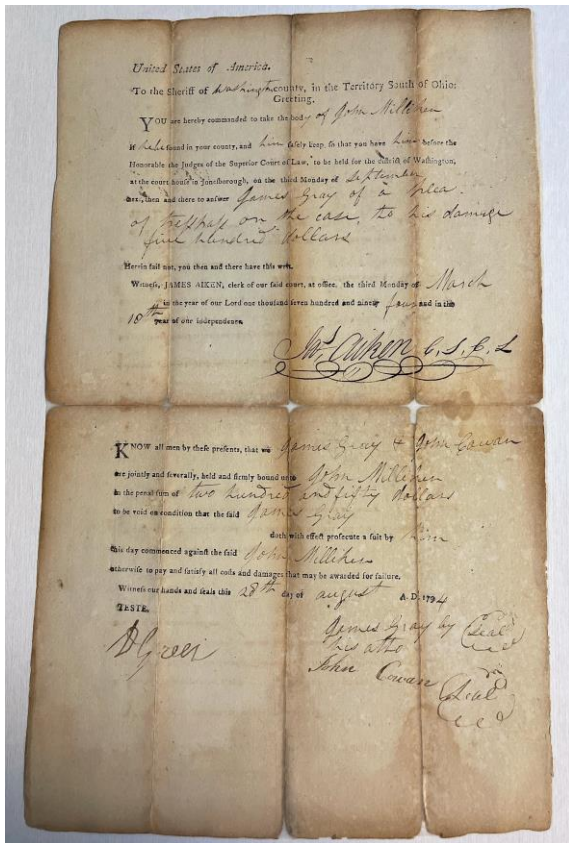 United States of America.
To the Sheriff of Washington county, in the Territory South of Ohio:
Greeting.
YOU are hereby commanded to take the body of John Milliken
if he be found in your county, and him safely keep, so that you have him before the
Honorable the Judges of the Superior Court of Law, to be held for the district of Washington,
at the court house in Jonesborough, on the third Monday of September
next, then and there to answer James Gray of a plea
of trespass on the case, to his damage
five hundred dollars
Herein fail not, you then and there have this writ.
Witness, JAMES AIKEN, clerk of our said court, at office, the third Monday of March
in the year of our Lord one thousand seven hundred and ninety four and in the
18th year of our independence.
Jas. Aiken C. S. C. L
KNOW all men by these presents, that we James Gray & John Cowan
are jointly and severally, held and firmly bound unto John Milliken
in the penal sum of two hundred and fifty dollars
to be void on condition that the said James Gray
doth with effect prosecute a suit by him
this day commenced against the said John Milliken
otherwise to pay and satisfy all costs and damages that may be awarded for failure.
Witness our hands and seals this 28th day of august A. D. 1794
TESTE.
James Gray by Seal
his atto
John Cowan Seal